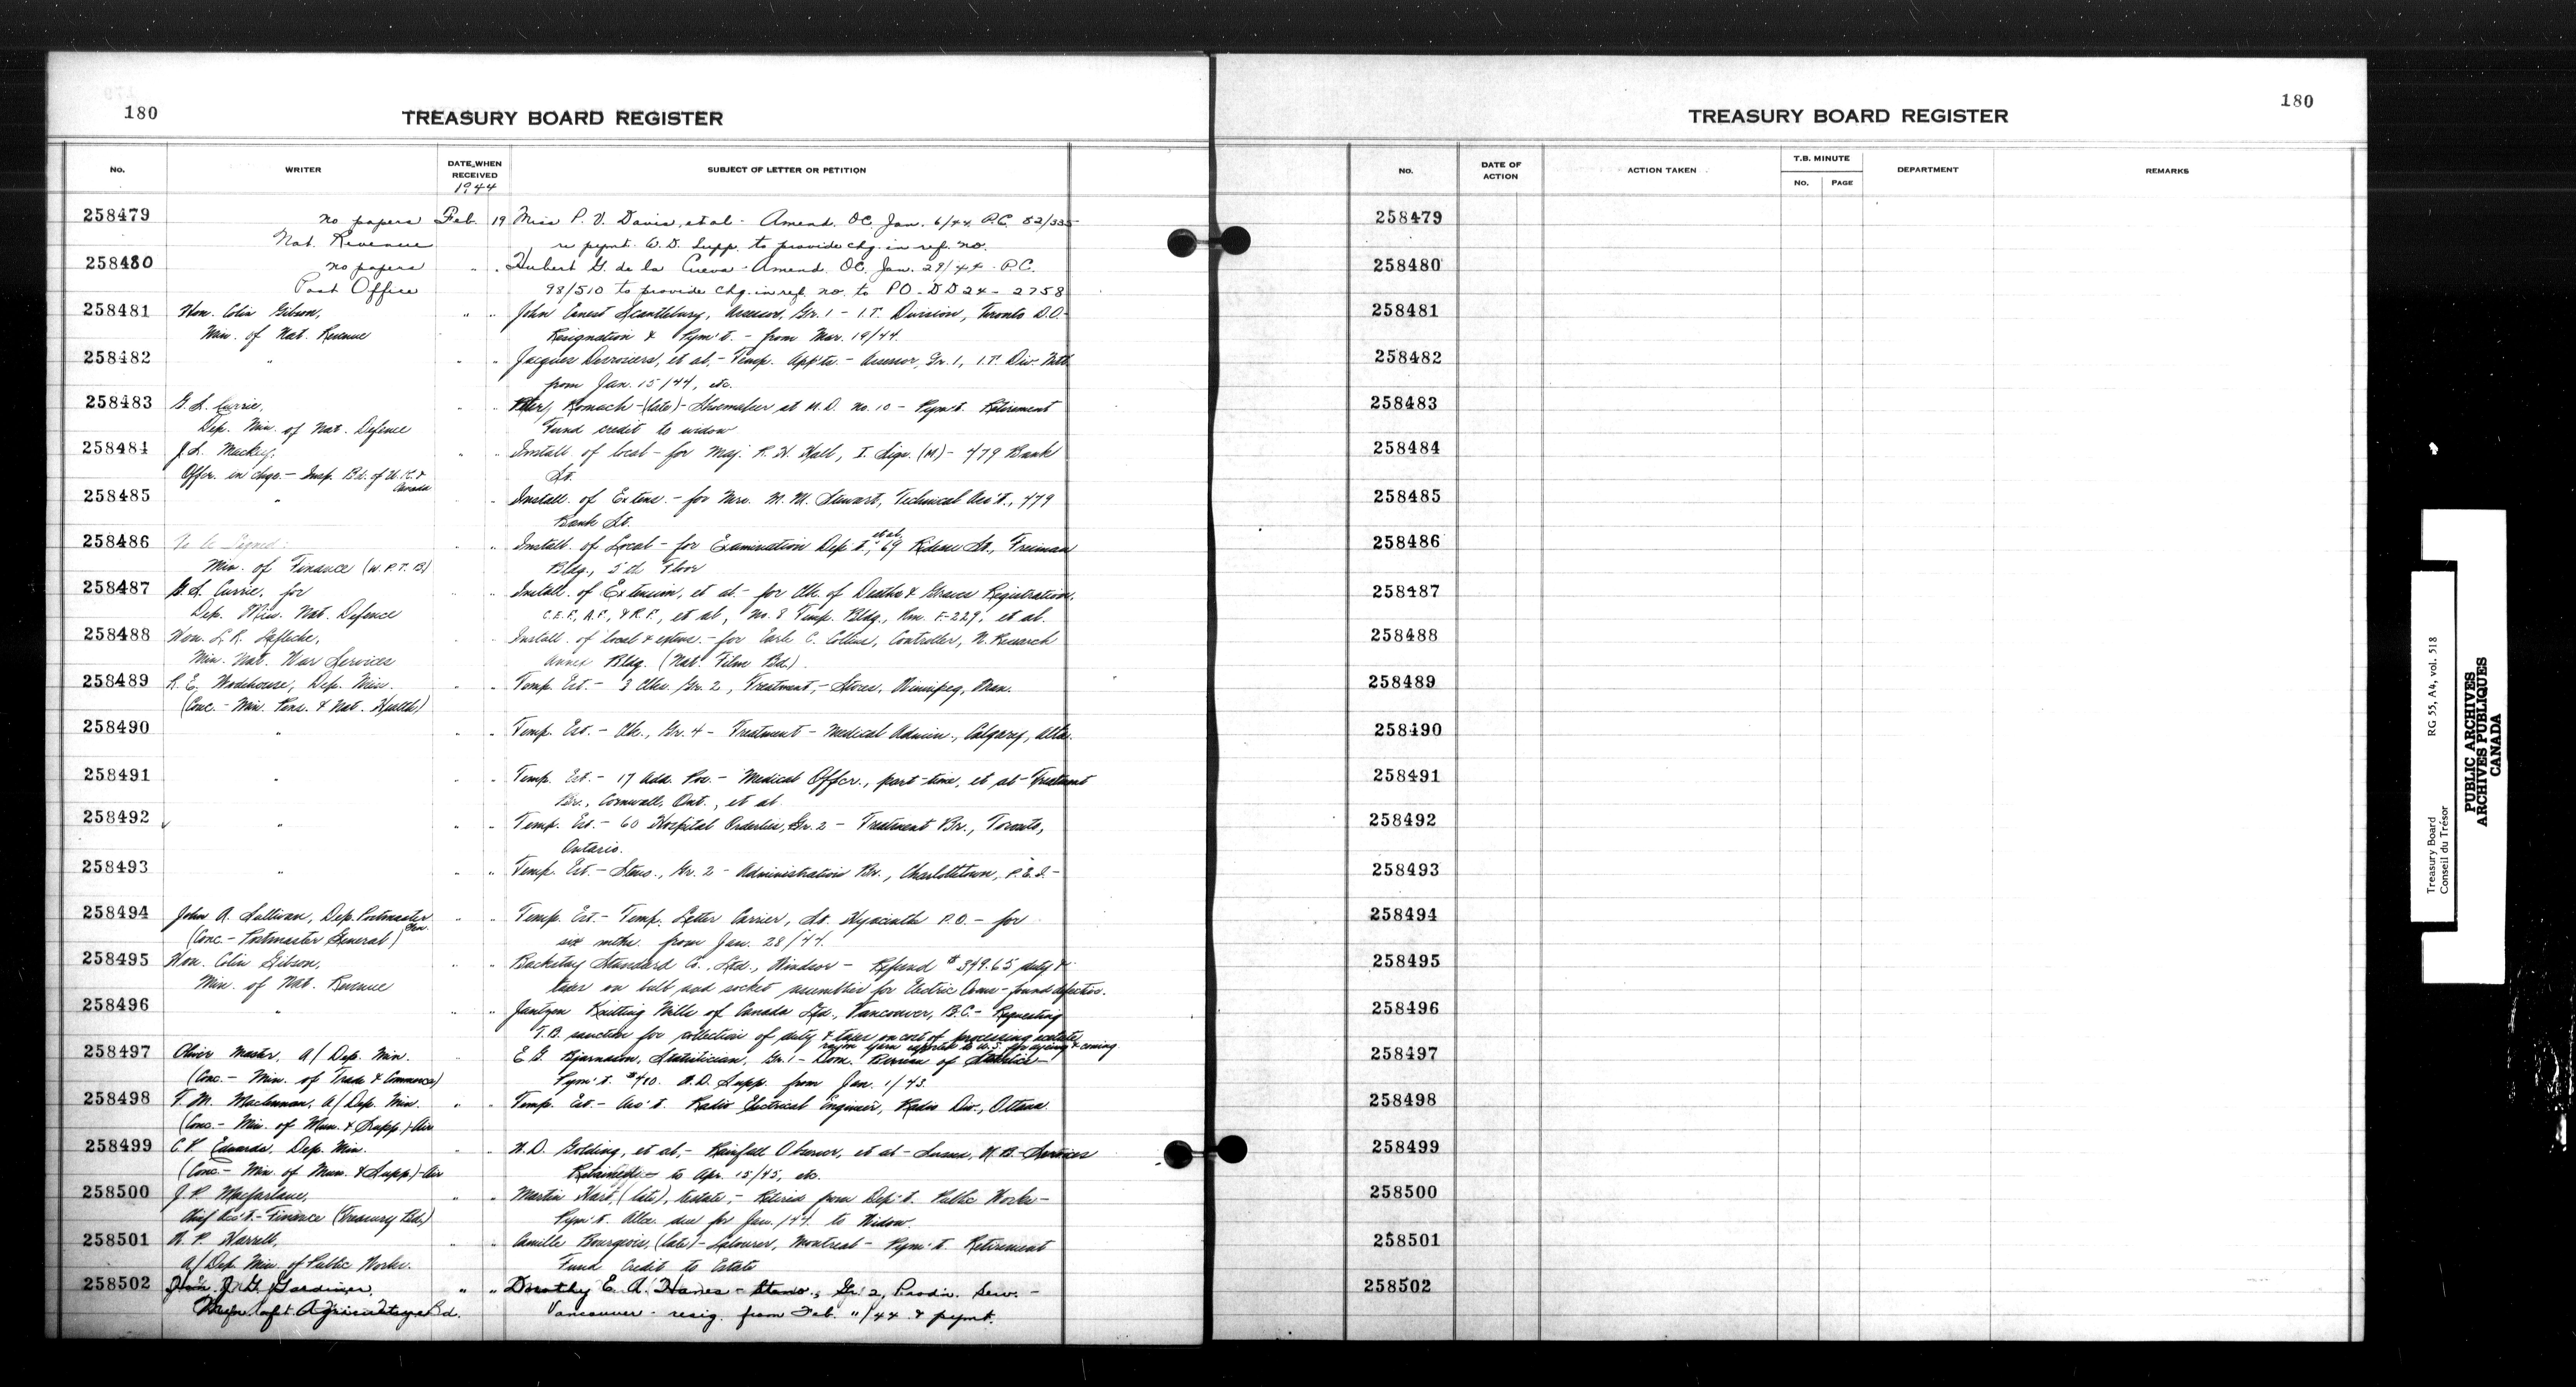 180
TREASURY BOARD REGISTER
No.
WRITER
DATE WHEN RECEIVED
1944
SUBJECT OF LETTER OR PETITION
258479 no papers Feb. 19 Miss P. V. Davis, et al - Amend. OC. Jan. 6/44 P.C. 52/335
Nat. Revenue re pymt. W.D. Supp. to provide chg. in ref. no.
258480 no papers " " Hubert G. de la Cueva - Amend. OC. Jan. 29/44 - P.C.
Post Office 98/510 to provide chg. in ref. no. to PO-DD24-2758
258481 Hon. Colin Gibson, " " John Ernest Scantlebury, Assessor, Gr. 1 - I.T. Division, Toronto D.O.
Min. of Nat. Revenue Resignation & Pym't. - from Mar. 19/44.
258482 " " " Jacques Desrosiers, et al, - Temp. App'ts. - Assessor, Gr. 1, I.T. Div. Mtl.
from Jan. 15/44, etc.
258483 G. S. Currie, " " Peter Romach - (late) - Shoemaker at M.D. No. 10 - Pym't. Retirement
Dep. Min. of Nat. Defence Fund credit to widow
258484 J. L. Mackey, " " Install. of local - for Maj. R. H. Hall, I. Sigs. (M) - 479 Bank
Offcr. in chge. - Insp. Bd. of U.K. & Canada St.
258485 " " " Install. of Extens. - for Mrs. M. M. Stewart, Technical Ass't., 479
Bank St.
258486 To be Signed: " " Install. of Local - for Examination Dep't., et al, 69 Rideau St., Freiman
Min. of Finance (W.P.T.B.) Bldg., 5th Floor
258487 G. S. Currie, for " " Install. of Extension, et al. - for Clk. of Deaths & Graves Registration,
Dep. Min. Nat. Defence C.E.F., A.F., & R.F., et al, No. 8 Temp. Bldg., Rm. F-229, et al.
258488 Hon. L. R. Lafleche, " " Install. of local & extens. - for Earle C. Collins, Controller, N. Research
Min. Nat. War Services Annex Bldg. (Nat. Film Bd.)
258489 R. E. Wodehouse, Dep. Min. " " Temp. Est. - 3 Clks. Gr. 2, Treatment, - Stores, Winnipeg, Man.
(Conc. - Min. Pens. & Nat. Health)
258490 " " " Temp. Est. - Clk., Gr. 4 - Treatment - Medical Admin., Calgary, Alta.
258491 " " " Temp. Est. - 17 Add. Pos. - Medical Offcr., part-time, et al - Treatment
Br., Cornwall, Ont., et al
258492 " " " Temp. Est. - 60 Hospital Orderlies, Gr. 2 - Treatment Br., Toronto,
Ontario.
258493 " " " Temp. Est. - Steno., Gr. 2 - Administration Br., Charlottetown, P.E.I. -
258494 John A. Sullivan, Dep. Postmaster Gen. " " Temp. Est. - Temp. Letter Carrier, St. Hyacinthe P.O. - for
(Conc. - Postmaster General) six mths. from Jan. 28/44.
258495 Hon. Colin Gibson, " " Backstay Standard Co., Ltd., Windsor - Refund $349.65 duty &
Min. of Nat. Revenue taxes on bulb and socket assemblies for Electric - found defective.
258496 " " " Jantzen Knitting Mills of Canada Ltd., Vancouver, B.C. - Requesting
T.B. sanction for collection of duty & taxes on cost of processing acetate
rayon yarn exported to U.S. for & coning
258497 Oliver Master, A/Dep. Min. " E. G. Bjarnason, Statistician, Gr. 1 - Dom. Bureau of Statistics -
(Conc. - Min. of Trade & Commerce) Pym't. $480. W.D. Supp. from Jan. 1/43.
258498 F. M. Maclennan, A/Dep. Min. " " Temp. Est. - Ass't. Radio Electrical Engineer, Radio Div., Ottawa
(Conc. - Min. of Mun. & Supp.) - Air
258499 C. P. Edwards, Dep. Min. " " N. D. Golding, et al, - Rainfall Observer, et al - Sussex, N.B. - Services
(Conc. - Min. of Mun. & Supp.) - Air Retained to Apr. 15/45, etc.
258500 J. P. Macfarlane, " " Martin Hart (late), testate, - Retired from Dep't. Public Works -
Chief Acc't. - Finance (Treasury Bd.) Pym't. Allce. due for Jan./44 to Widow.
258501 W. P. Harrell, " " Camille Bourgeois, (late) - Labourer, Montreal - Pym't. Retirement
A/Dep. Min. of Public Works. Fund Credit to Estate
258502 Hon. J. G. Gardiner, " " Dorothy E. A. Hanes - Steno., Gr. 2, Prod'n. Serv. -
Min. of Agriculture Vancouver - resig. from Feb. 11/44 & pymt.
TREASURY BOARD REGISTER
180
No.
DATE OF ACTION
ACTION TAKEN
T.B. MINUTE
No.
PAGE
DEPARTMENT
REMARKS
258479
258480
258481
258482
258483
258484
258485
258486
258487
258488
258489
258490
258491
258492
258493
258494
258495
258496
258497
258498
258499
258500
258501
258502
Treasury Board
Conseil du Trésor
RG 55, A4, vol. 518
PUBLIC ARCHIVES
ARCHIVES PUBLIQUES
CANADA